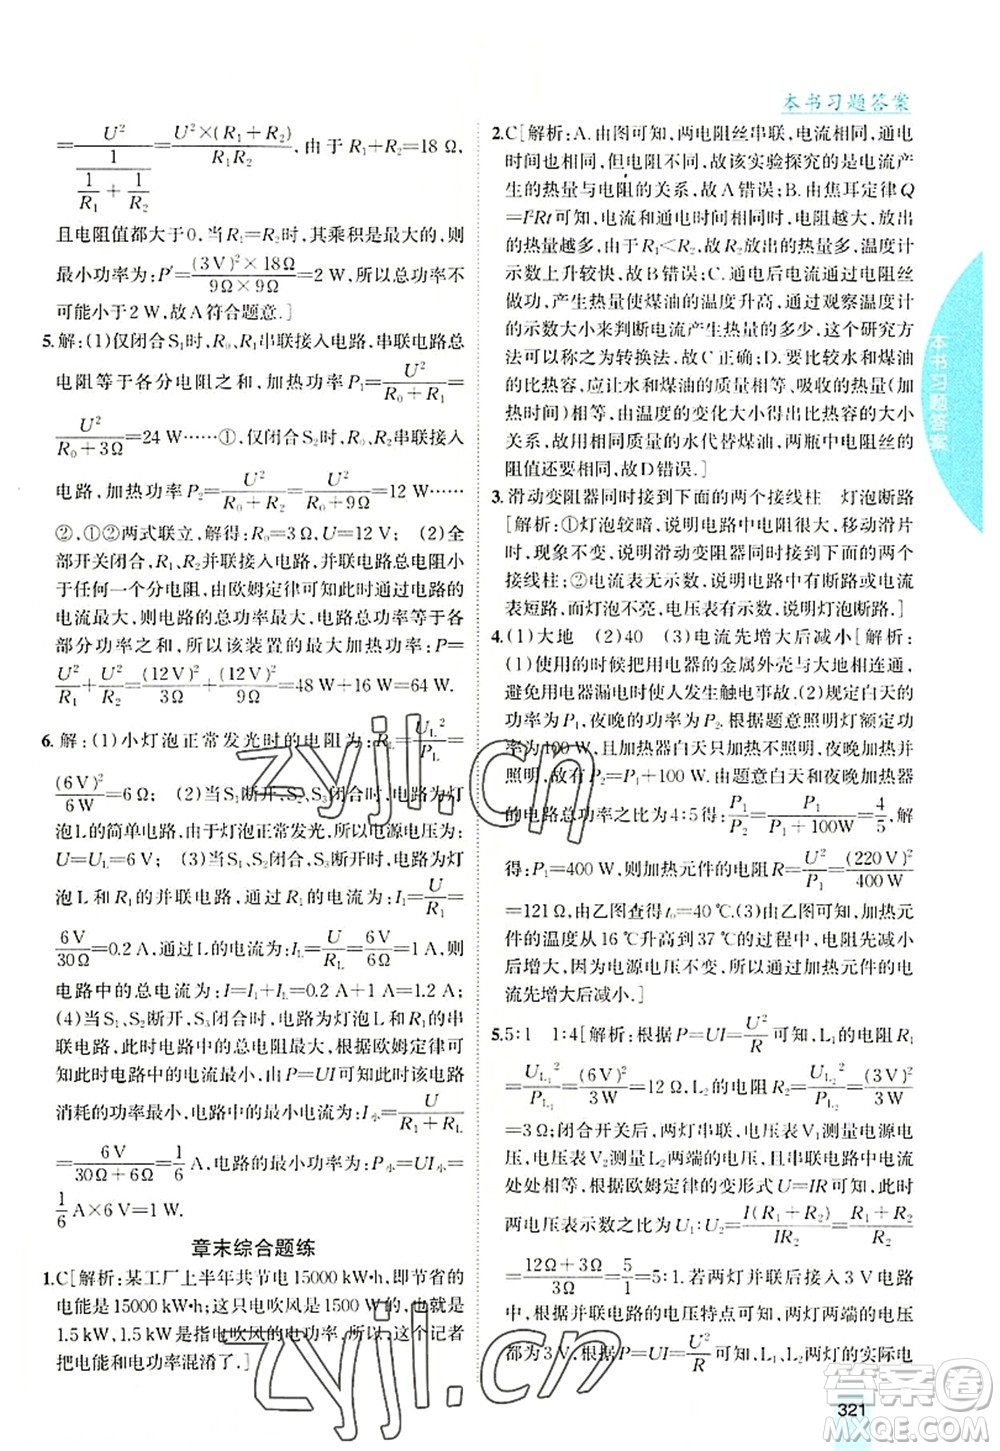 本书习题答案
=U²/(1/(1/R₁+1/R₂))=U²×(R₁+R₂)/(R₁R₂), 由于 R₁+R₂=18 Ω,
且电阻值都大于0,当R₁=R₂时,其乘积最大,则
最小功率为:P′=(3 V)²×18Ω/(9Ω×9Ω)=2 W,所以总功率不
可能小于2 W,故A符合题意。]
5.解:(1)仅闭合S₁时,R₁、R₀串联接入电路,串联电路总
电阻等于各分电阻之和,加热功率P₁=U²/(R₀+R₁)=
U²/(R₀+3Ω)=24 W……①,仅闭合S₂时,R₂、R₀串联接入
电路,加热功率P₂=U²/(R₀+R₂)=U²/(R₀+9Ω)=12 W……
②,①、②两式联立,解得:R₀=3Ω,U=12 V; (2)全
部开关闭合,R₁、R₂并联接入电路,并联电路总电阻小
于任意分电阻,由欧姆定律可知此时并联电路的
电流最大,则电路的总功率最大,电路总功率等于各
部分功率之和,所以该装置的最大加热功率:P=
U²/R₁+U²/R₂=(12 V)²/3Ω+(12 V)²/9Ω=48 W+16 W=64 W.
6.解:(1)小灯泡正常发光时的电阻为:R_L=U_L²/P_L=
(6 V)²/6 W=6 Ω; (2)当S₁断开,S₂、S₃闭合时,电路为灯
泡L的简单电路,由于灯泡正常发光,所以电源电压为:
U=U_L=6 V; (3)当S₁、S₂闭合,S₃断开时,电路为灯
泡L和R₁的并联电路,通过R₁的电流为:I₁=U/R₁=
6 V/30Ω=0.2 A,通过L的电流为:I_L=U/R_L=6 V/6Ω=1 A,则
电路中的总电流为:I=I₁+I_L=0.2 A+1 A=1.2 A;
(4)当S₁、S₂断开,S₃闭合时,电路为灯泡L和R₁的串
联电路,此时电路中的总电阻最大,根据欧姆定律可
知电路中的电流最小,由P=UI可知此时整个电路
消耗的功率最小,电路中的最小电流为:I小=U/(R₁+R_L)
=6 V/(30Ω+6Ω)=1/6 A,电路的最小功率为:P小=UI小=
1/6 A×6 V=1 W.
章末综合题练
1.C[解析:某工厂上半年共节电15000 kW·h,即节省的
电能是15000 kW·h;这只电吹风是1500 W的,也就是
1.5 kW,1.5 kW是指电吹风的电功率,所以,这个记者
把电能和电功率混淆了。]
2.C[解析:A.由图可知,两电阻丝串联,电流相同,通电
时间也相同,而电阻不同,故该实验探究的是电流产
生的热量与电阻的关系,故A错误;B.由焦耳定律Q
=I²Rt可知,电流和通电时间相同时,电阻越大,放出
的热量越多,由于R₁<R₂,故R₂放出的热量多,温度计
示数上升较快,故B错误;C.通电后电流通过电阻丝
做功,产生热量使煤油的温度升高,通过观察温度计
的示数大小来判断电流产生热量的多少,这种研究方
法可以称之为转换法,故C正确;D.要比较水和煤油的
比热容,应让水和煤油的质量相等、吸收的热量(加
热时间)相等,由温度的变化大小得出比热容的大小
关系,故用相等质量的水代替煤油,两瓶中电阻丝的
阻值还要相同,故D错误。]
3.滑动变阻器同时接到下面的两个接线柱 灯泡断路
[解析:①灯泡较暗,说明电路中电阻较大,移动滑片
时,现象不变,说明滑动变阻器同时接下面的两个
接线柱;②电流表无示数,说明电路中有断路或电流
表短路,而灯泡不亮,电压表有示数,说明灯泡断路。]
4.(1)大地 (2)40 (3)电流先增大后减小[解析:
(1)使用的时候把用电器的金属外壳与大地相连通,
避免用电器漏电时使人发生触电事故.(2)规定白天的
功率为P₁,夜晚的功率为P₂,根据题意照明灯的额定功
率为100 W,且加热器白天只加热不照明,夜晚加热并
照明,故有P₂=P₁+100 W,由题意可知白天和夜晚加热器
的电路总功率之比为4∶5得:P₁/P₂=P₁/(P₁+100W)=4/5,解
得:P₁=400 W,则加热元件的电阻R=U²/P₁=(220 V)²/400 W
=121 Ω,由乙图查得t₀=40 ℃.(3)由丙图可知,加热元
件的温度从16 ℃升高到37 ℃的过程中,电阻先减小
后增大,因为电源电压不变,所以通过加热元件的电
流先增大后减小。]
5.5∶1 1∶4[解析:根据P=UI=U²/R可知,L₁的电阻R₁
=U_L₁²/P_L₁=(6 V)²/3 W=12 Ω,L₂的电阻R₂=U_L₂²/P_L₂=(3 V)²/3 W=
3 Ω;闭合开关后,两灯串联,电压表V₁测量电源电
压,电压表V₂测量L₂两端的电压,且串联电路中电流
处处相等,根据欧姆定律的变形式U=IR可知,此时
两电压表示数之比为U₁∶U₂=I(R₁+R₂)/IR₂=(R₁+R₂)/R₂=
(12Ω+3Ω)/3Ω=5/1=5∶1.若两灯并联后接入3 V电路
中,根据并联电路的电压特点可知,两灯两端的电压
都为3 V,根据P=UI=U²/R可知,L₁、L₂两灯的实际电
本书习题答案
zyjl.cn
zyjl.cn
答案圈
321